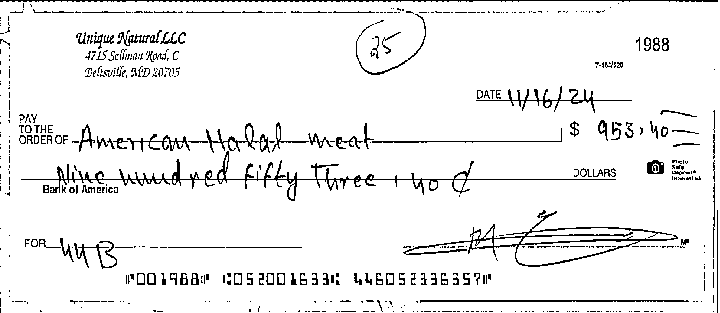 Unique Natural LLC
25
1988
4715 Sellman Road, C
Beltsville, MD 20705
DATE 11/16/24
PAY TO THE ORDER OF American Halal meat $ 953.40
Nine hundred fifty Three . 40 ¢ DOLLARS
Photo Safe Deposit
Bank of America
FOR 44B
MP
⑈001988⑈ ⑆052001633⑆ 446052336357⑈